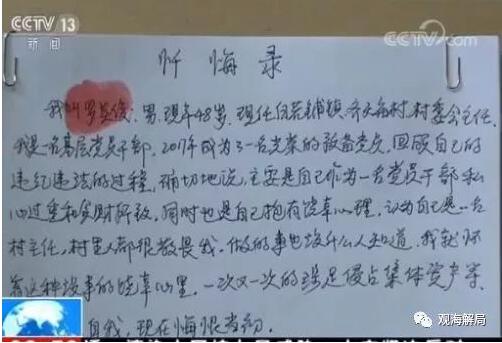 CCTV 13
新闻
CCTV
忏悔录
我叫罗英俊,男,现年48岁,现任 镇 村,村委会主任,
我是一名基层党员干部,2017年成为了一名光荣的预备党员,回顾自己的
违纪违法的过程,确切地说,主要是自己作为一名党员干部私
心过重和贪财所致,同时也是自己抱有侥幸心理,认为自己是一名
村主任,村里人都很敬畏我,做的事也没什么人知道,我就怀
着这种 的侥幸心里,一次又一次的 足侵占集体资产等
自我,现在悔恨当初
观海解局